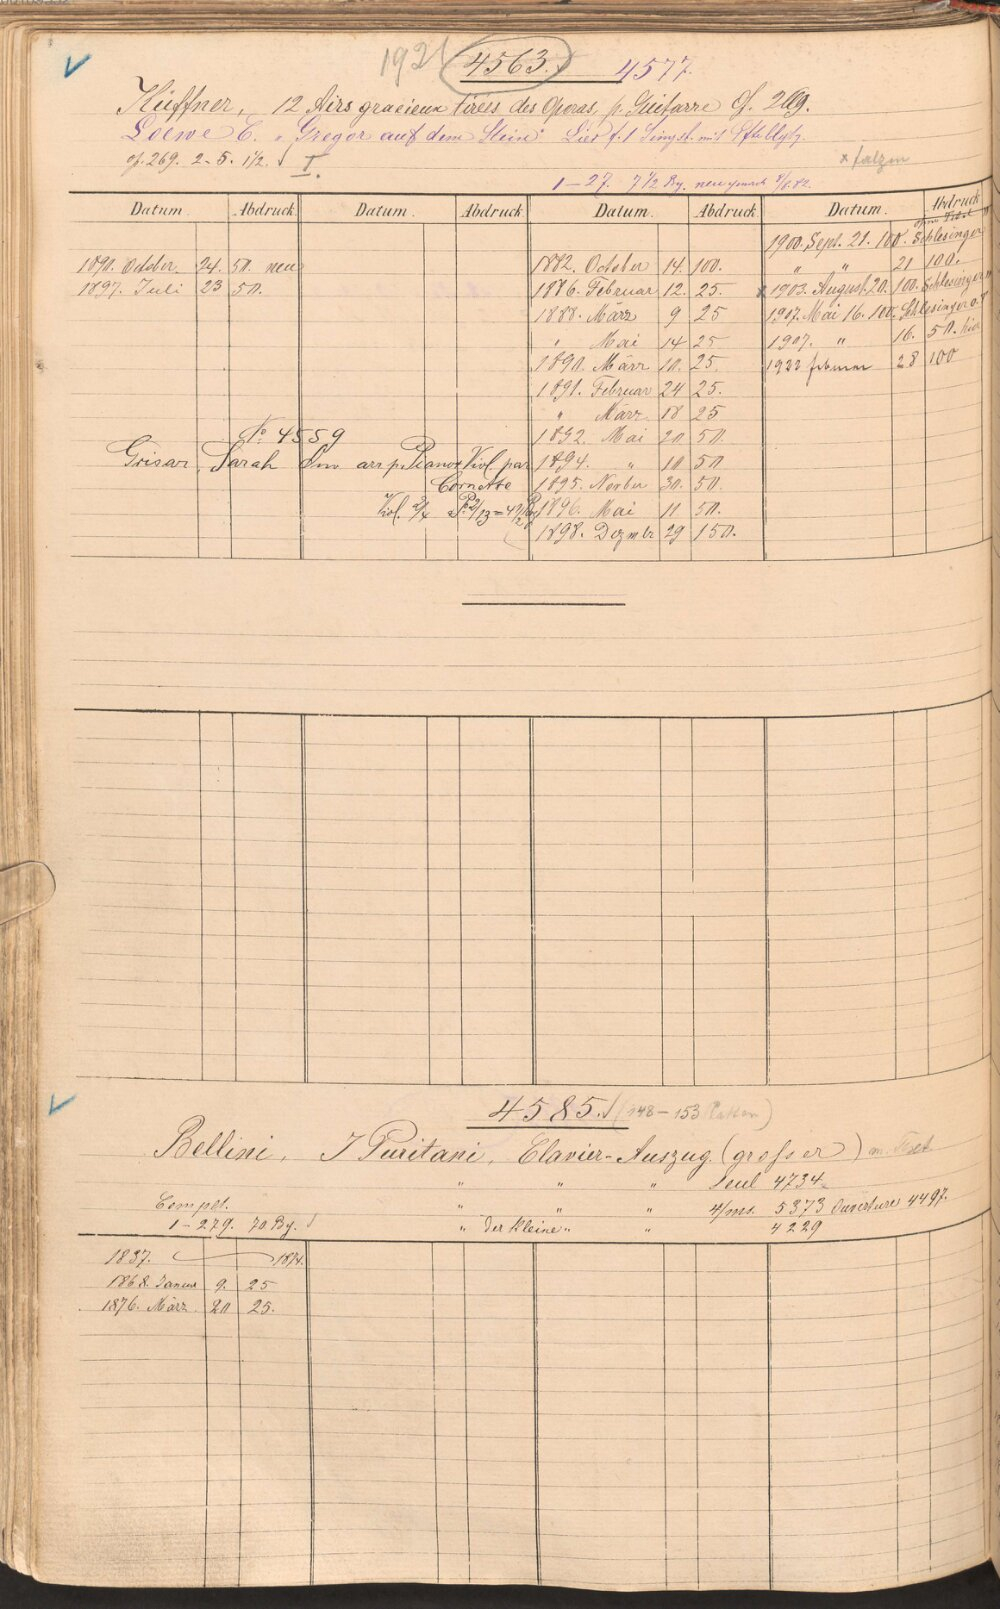 4563. 4577.
Küffner, 12 Airs gracieux tirées des Operas, p. Guitarre Op. 269.
Loewe C. "Gregor auf dem Stein" Lied f. 1 Singst. mit
op. 269. 2-5. 1½. I.
x falzen
1-27. 7½ Bg. 8/6.82.
Datum. Abdruck. Datum. Abdruck. Datum. Abdruck. Datum. Abdruck
1890. October 24. 50. neu
1897. Juli 23 50.
No. 4559
Grisar, Sarah arr p. Piano & Viol. par
Cornette
Viol. 2/4
1882. October 14. 100.
1886. Februar 12. 25.
1888. März 9 25
" Mai 14 25
1890. März 10. 25.
1891. Februar 24 25.
" März 18 25
1892. Mai 20 50.
1894. " 10 50
1895. Novber 30. 50.
1896. Mai 11 50.
1898. Dezmbr 29 150.
1900. Sept. 21. 100. Schlesinger
" " 21 100.
x 1903. August. 20. 100. Schlesinger
1907. Mai 16. 100. Schlesinger
1907. " 16. 50. hier
1922 februar 28 100
4585. (148-153 Platten)
Bellini, I Puritani, Clavier-Auszug (grosser) m. Text
" " " Seul 4734
Complet. " " " 4/ms. 5373 Ouverture 4497.
1-279. 70 Bg. " der kleine " " 4229
1837. 1874.
1868. Januar 9. 25
1876. März 20 25.